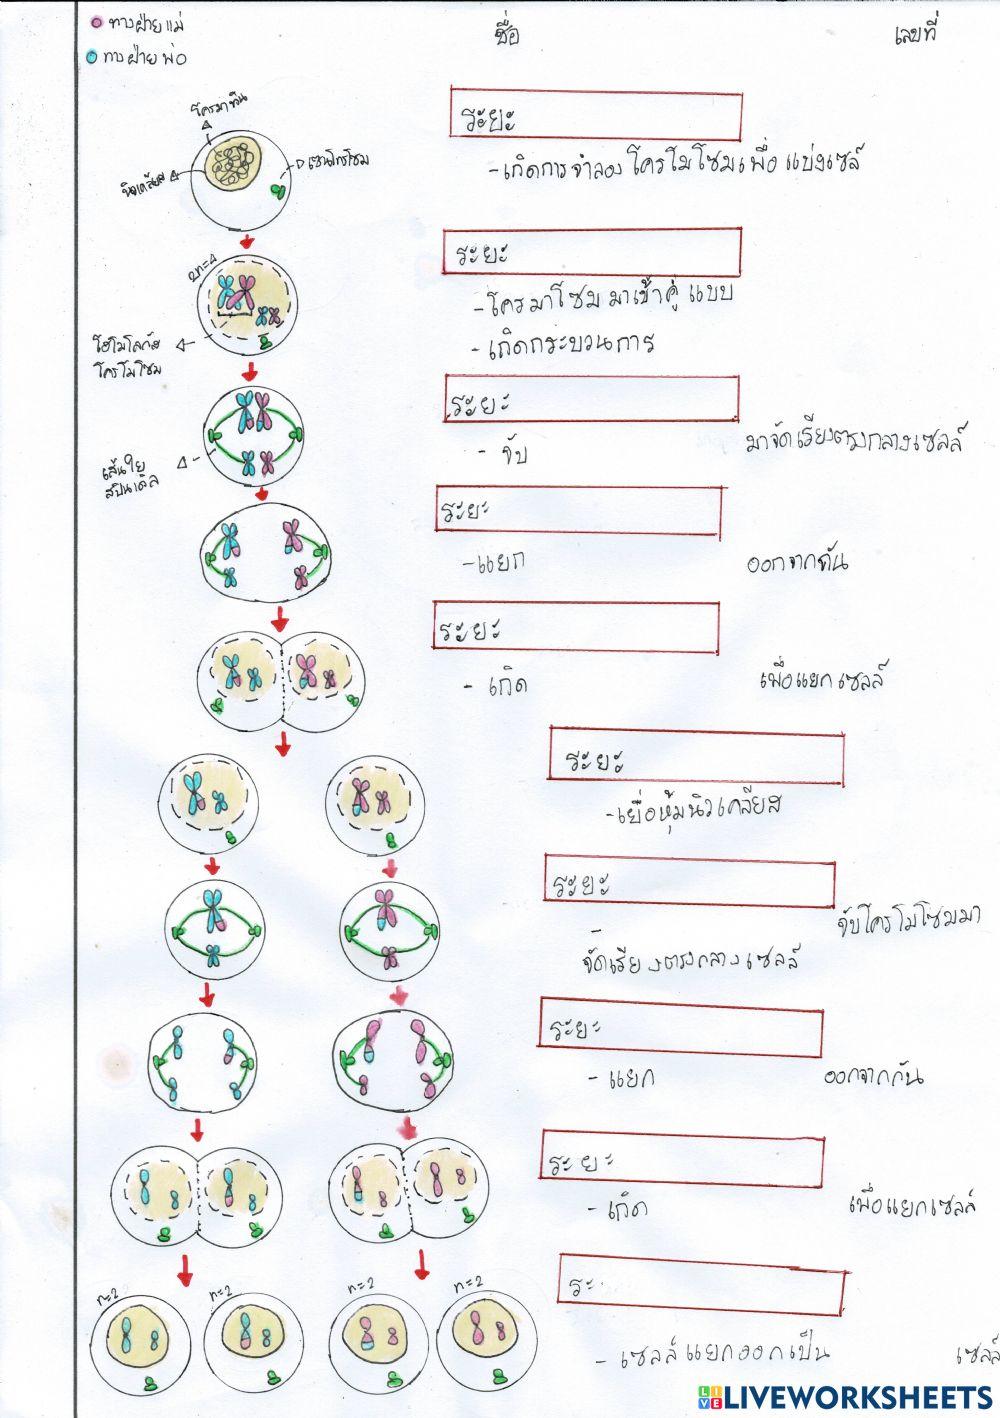 ทางฝ่ายแม่
ทางฝ่ายพ่อ
ชื่อ
เลขที่
โครมาทิน
นิวเคลียส
เซนโทรโซม
ระยะ
-เกิดการจำลองโครโมโซมเพื่อแบ่งเซล์
2n=4
ระยะ
-โครมาโซมมาเข้าคู่แบบ
-เกิดกระบวนการ
โฮโมโลกัส
โครโมโซม
ระยะ
- จับ
มาจัดเรียงตรงกลางเซลล์
เส้นใย
สปินเดิล
ระยะ
-แยก
ออกจากกัน
ระยะ
- เกิด
เพื่อแยกเซลล์
ระยะ
-เยื่อหุ้มนิวเคลียส
ระยะ
จับโครโมโซมมา
-
จัดเรียงตรงกลางเซลล์
ระยะ
- แยก
ออกจากกัน
ระยะ
- เกิด
เพื่อแยกเซลล์
ระ
n=2
n=2
n=2
n=2
- เซลล์แยกออกเป็น
เซลล์
LIVEWORKSHEETS